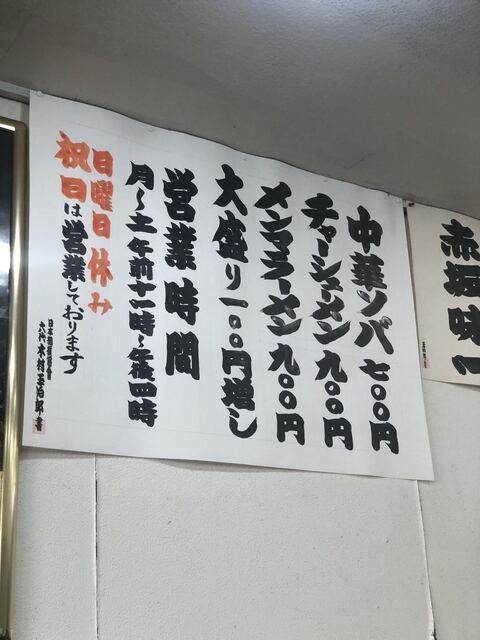 赤坂味一
中華ソバ 七〇〇円
チャーシューメン 九〇〇円
メンマラーメン 九〇〇円
大盛り一〇〇円増し
営業時間
月〜土 午前十一時〜午後四時
日曜日休み
祝日は営業しております
日本相撲協会
六代木村玉治郎書